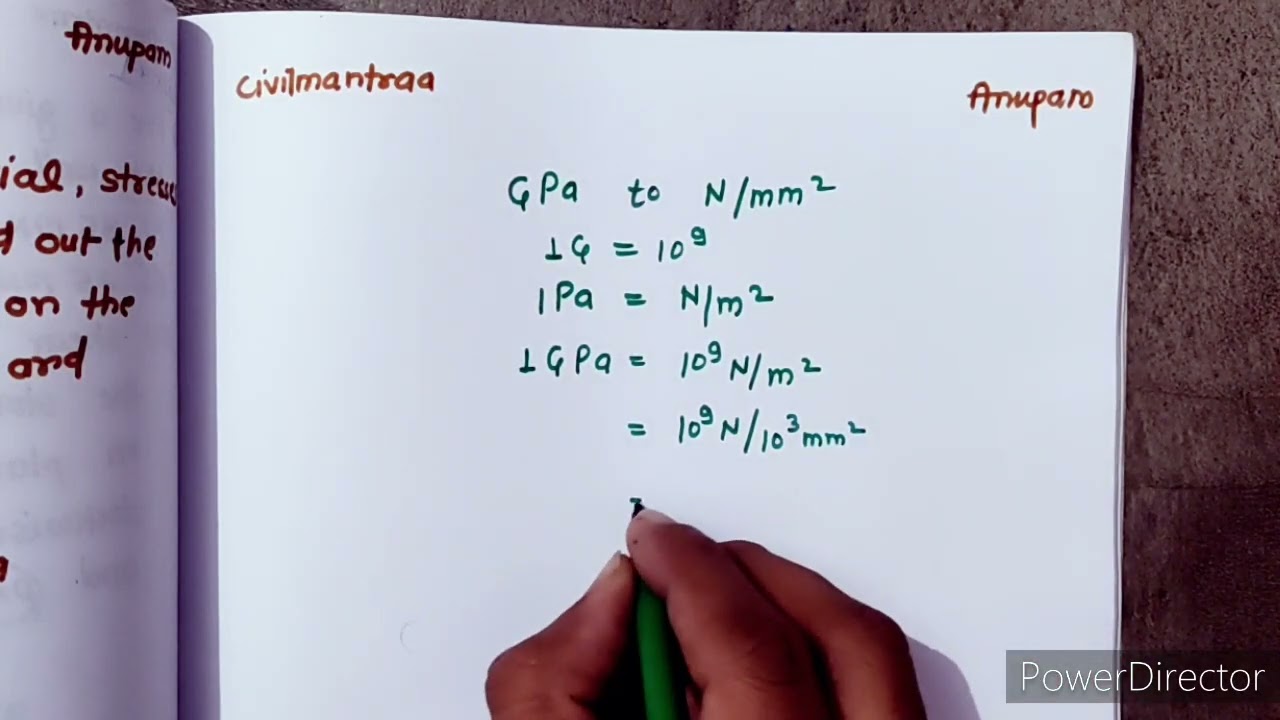 Anupam
ial, stress
out the
on the
and
Civilmantraa
Anupam
GPa to N/mm²
1G = 10⁹
1Pa = N/m²
1GPa = 10⁹ N/m²
= 10⁹ N/10³ mm²
=
PowerDirector